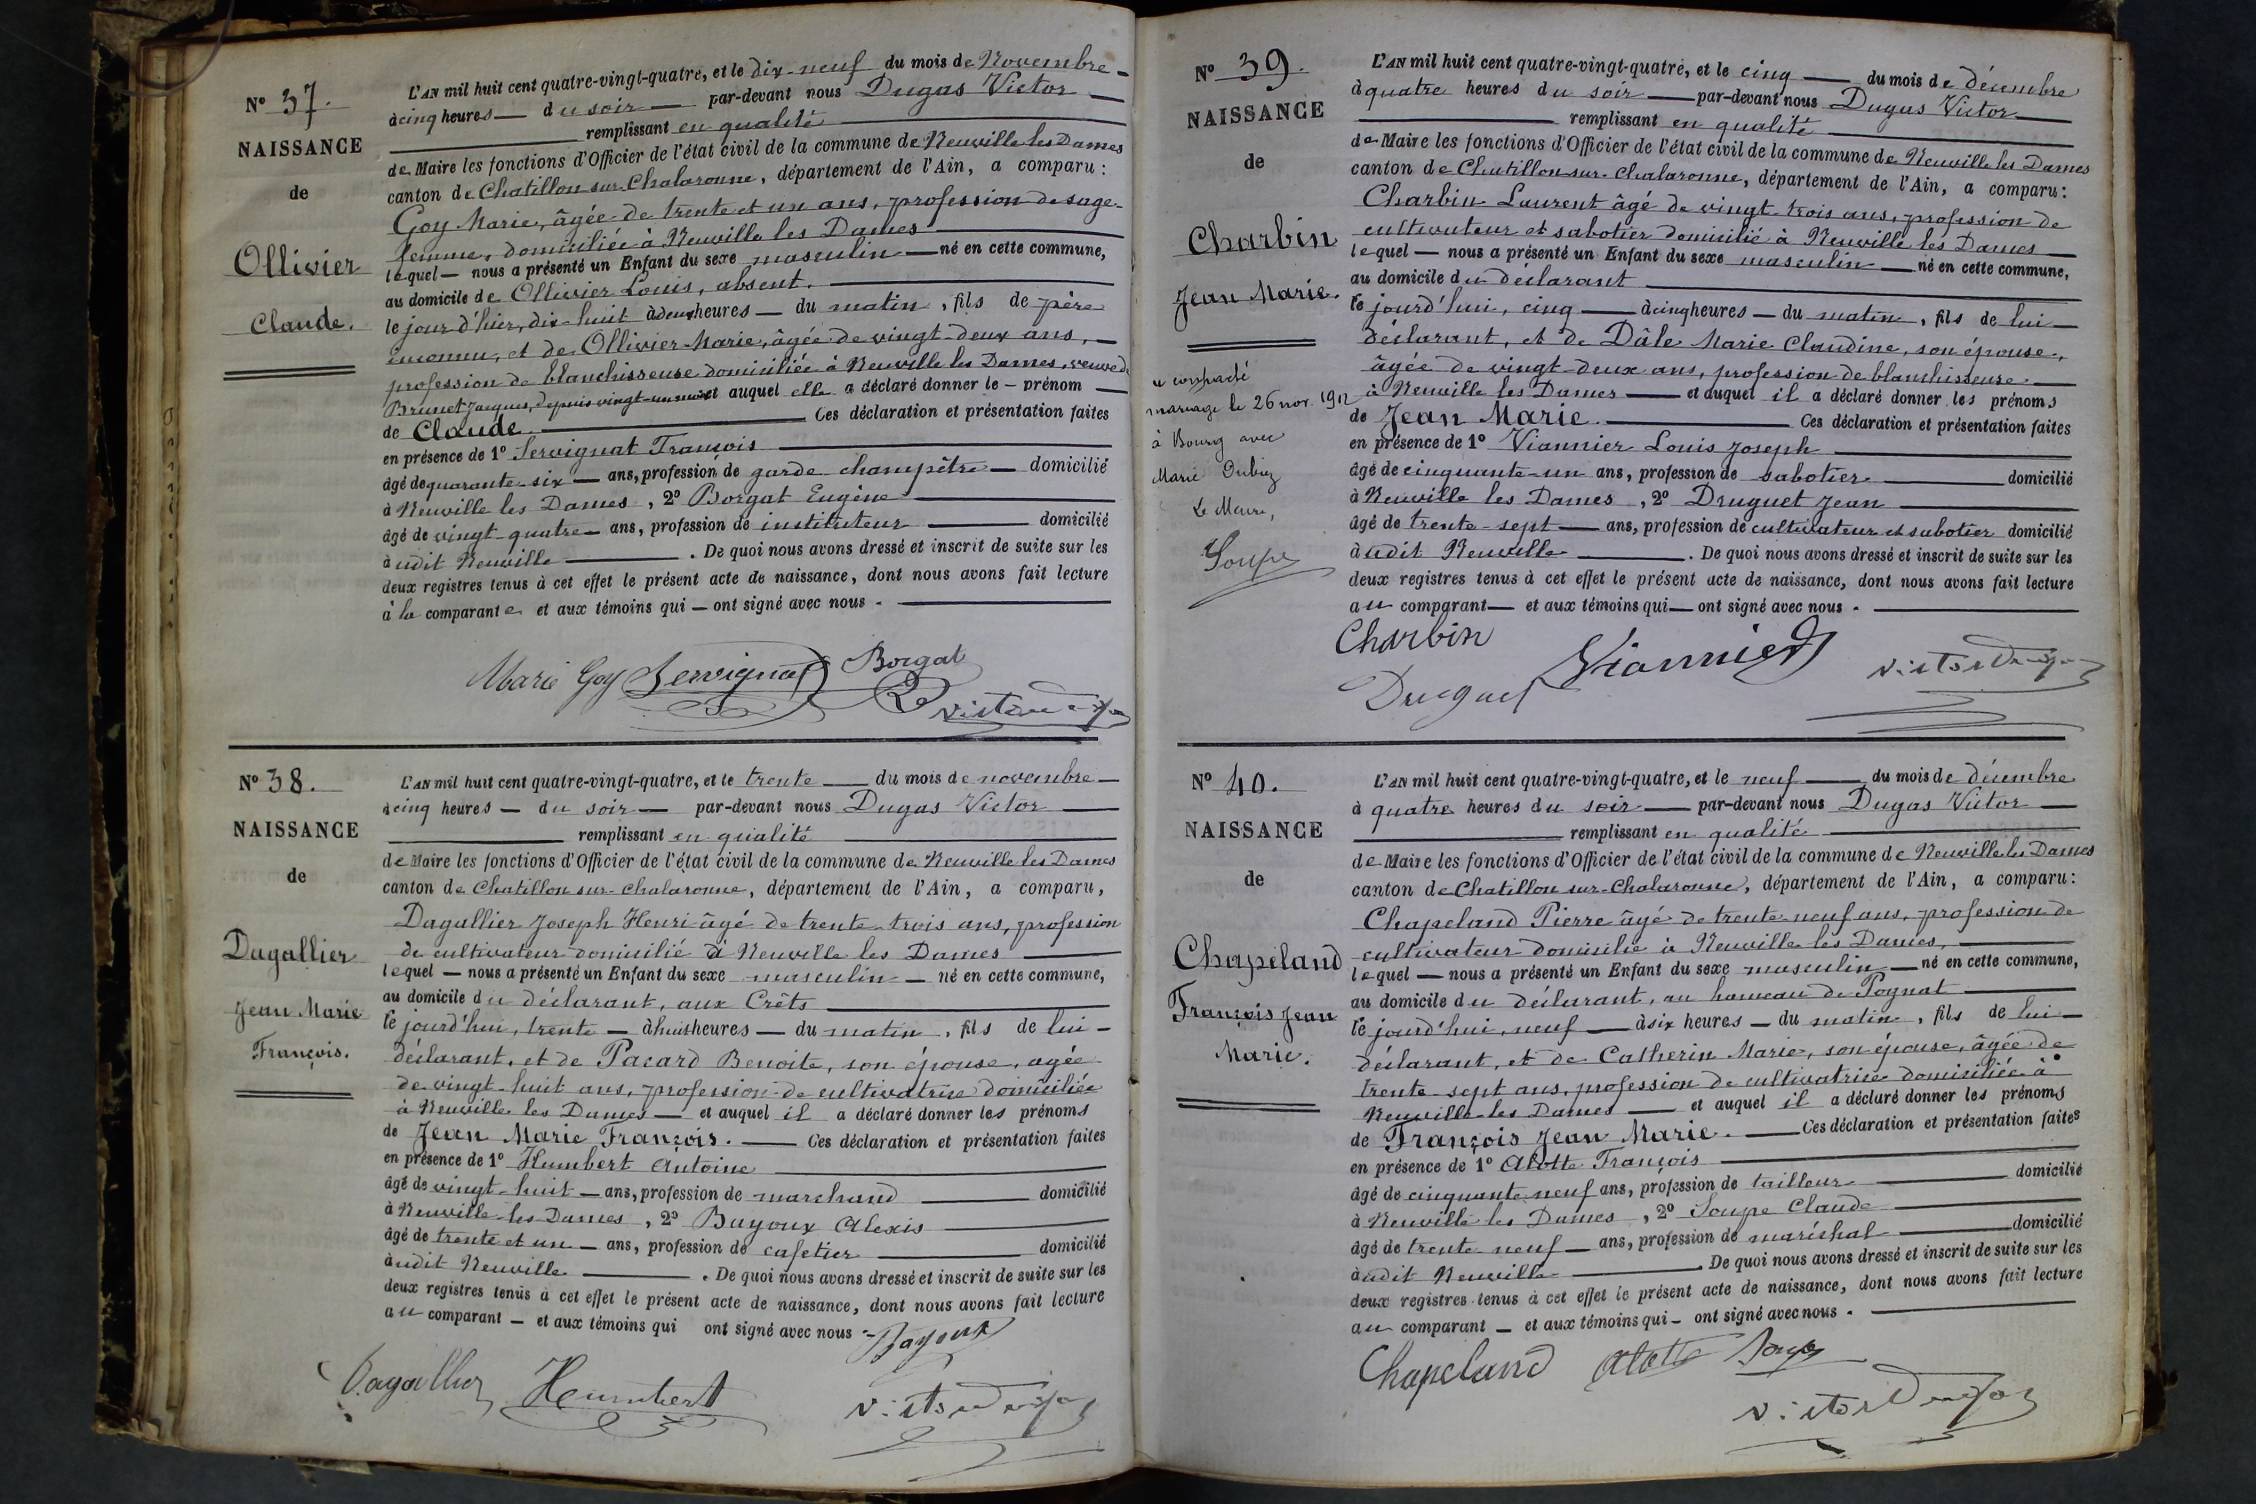 N° 37.
NAISSANCE
de
Ollivier
Claude.
L'AN mil huit cent quatre-vingt-quatre, et le dix-neuf du mois de Novembre
à cinq heures du soir par-devant nous Dugas Victor
remplissant en qualité
de Maire les fonctions d'Officier de l'état civil de la commune de Neuville les Dames
canton de Chatillon sur Chalaronne, département de l'Ain, a comparu :
Goy Marie, âgée de trente et un ans, profession de sage-
femme, domiciliée à Neuville les Dames
lequel nous a présenté un Enfant du sexe masculin né en cette commune,
au domicile de Ollivier Louis, absent.
le jour d'hier, dix-huit à deux heures du matin, fils de père
inconnu, et de Ollivier Marie, âgée de vingt-deux ans,
profession de blanchisseuse domiciliée à Neuville les Dames, veuve de
Brunet Jacques, depuis vingt-un mois et auquel elle a déclaré donner le prénom
de Claude Ces déclaration et présentation faites
en présence de 1° Servignat François
âgé de quarante-six ans, profession de garde champêtre domicilié
à Neuville les Dames, 2° Borgat Eugène
âgé de vingt-quatre ans, profession de instituteur domicilié
audit Neuville. De quoi nous avons dressé et inscrit de suite sur les
deux registres tenus à cet effet le présent acte de naissance, dont nous avons fait lecture
à la comparante et aux témoins qui ont signé avec nous.
Marie Goy Servignat Borgat
Victor Dugas
N° 38.
NAISSANCE
de
Dagallier
Jean Marie
François.
L'AN mil huit cent quatre-vingt-quatre, et le trente du mois de novembre
à cinq heures du soir par-devant nous Dugas Victor
remplissant en qualité
de Maire les fonctions d'Officier de l'état civil de la commune de Neuville les Dames
canton de Chatillon sur-Chalaronne, département de l'Ain, a comparu,
Dagallier Joseph Henri âgé de trente-trois ans, profession
de cultivateur domicilié à Neuville les Dames
lequel nous a présenté un Enfant du sexe masculin né en cette commune,
au domicile du déclarant, aux Crêts
le jourd'hui, trente à huit heures du matin, fils de lui
déclarant, et de Pacard Benoite, son épouse, agée
de vingt-huit ans, profession de cultivatrice domiciliée
à Neuville les Dames et auquel il a déclaré donner les prénoms
de Jean Marie François. Ces déclaration et présentation faites
en présence de 1° Humbert Antoine
âgé de vingt-huit ans, profession de marchand domicilié
à Neuville les Dames, 2° Bayoux Alexis
âgé de trente et un ans, profession de cafetier domicilié
audit Neuville. De quoi nous avons dressé et inscrit de suite sur les
deux registres tenus à cet effet le présent acte de naissance, dont nous avons fait lecture
au comparant et aux témoins qui ont signé avec nous Bayoux
Dagallier Humbert Victor Dugas
N° 39.
NAISSANCE
de
Charbin
Jean Marie.
a contracté
mariage le 26 nov. 1912
à Bourg avec
Marie
Le Maire,
Soupe
L'AN mil huit cent quatre-vingt-quatre, et le cinq du mois de décembre
à quatre heures du soir par-devant nous Dugas Victor
remplissant en qualité
de Maire les fonctions d'Officier de l'état civil de la commune de Neuville les Dames
canton de Chatillon-sur-Chalaronne, département de l'Ain, a comparu :
Charbin Laurent âgé de vingt-trois ans, profession de
cultivateur et sabotier domicilié à Neuville les Dames
lequel nous a présenté un Enfant du sexe masculin né en cette commune,
au domicile du déclarant
le jourd'hui, cinq à cinq heures du matin, fils de lui
déclarant, et de Dâle Marie Claudine, son épouse,
âgée de vingt-deux ans, profession de blanchisseuse.
à Neuville les Dames et auquel il a déclaré donner les prénoms
de Jean Marie Ces déclaration et présentation faites
en présence de 1° Viannier Louis Joseph
âgé de cinquante-un ans, profession de sabotier domicilié
à Neuville les Dames, 2° Druguet Jean
âgé de trente-sept ans, profession de cultivateur et sabotier domicilié
audit Neuville. De quoi nous avons dressé et inscrit de suite sur les
deux registres tenus à cet effet le présent acte de naissance, dont nous avons fait lecture
au comparant et aux témoins qui ont signé avec nous.
Charbin Viannier Victor Dugas
Druguet
N° 40.
NAISSANCE
de
Chapeland
François Jean
Marie.
L'AN mil huit cent quatre-vingt-quatre, et le neuf du mois de décembre
à quatre heures du soir par-devant nous Dugas Victor
remplissant en qualité
de Maire les fonctions d'Officier de l'état civil de la commune de Neuville les Dames
canton de Chatillon sur-Chalaronne, département de l'Ain, a comparu :
Chapeland Pierre âgé de trente-neuf ans, profession de
cultivateur domicilié à Neuville les Dames,
lequel nous a présenté un Enfant du sexe masculin né en cette commune,
au domicile du déclarant, au hameau de Pognat
le jourd'hui, neuf à six heures du matin, fils de lui
déclarant, et de Catherin Marie, son épouse, âgée de
trente-sept ans, profession de cultivatrice domiciliée à
Neuville les Dames et auquel il a déclaré donner les prénoms
de François Jean Marie. Ces déclaration et présentation faites
en présence de 1° Alotte François
âgé de cinquante-neuf ans, profession de tailleur domicilié
à Neuville les Dames, 2° Soupe Claude
âgé de trente-neuf ans, profession de maréchal domicilié
audit Neuville. De quoi nous avons dressé et inscrit de suite sur les
deux registres tenus à cet effet le présent acte de naissance, dont nous avons fait lecture
au comparant et aux témoins qui ont signé avec nous.
Chapeland Alotte Soupe
Victor Dugas